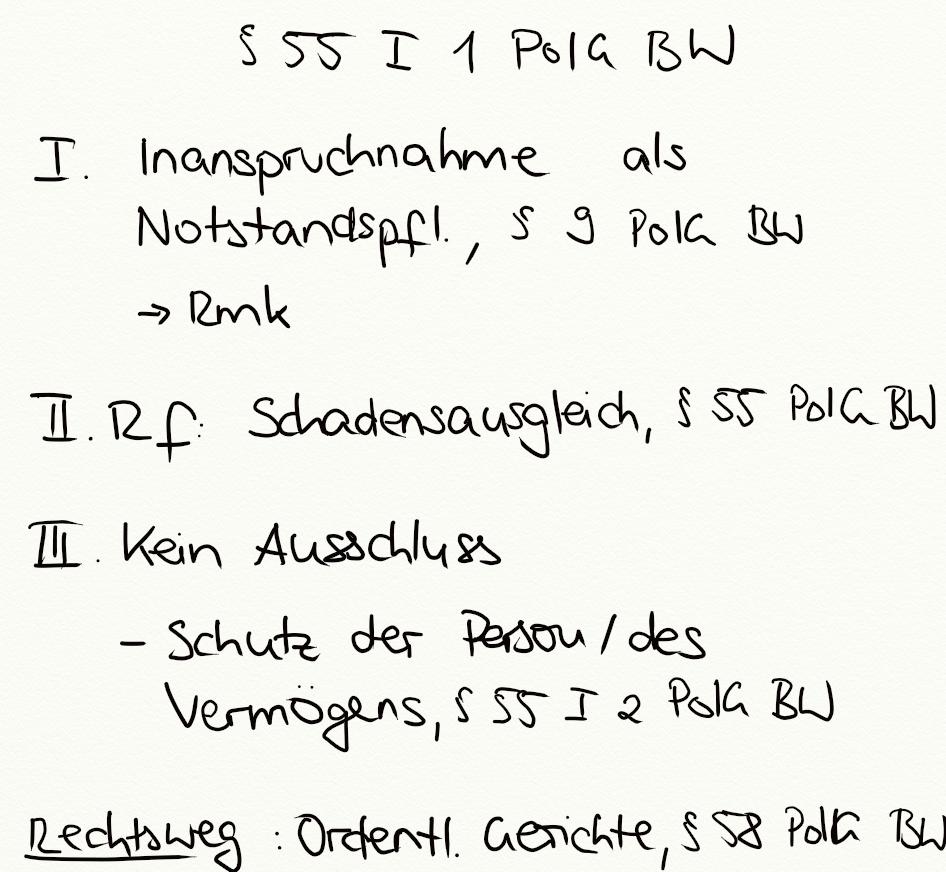 § 55 I 1 PolG BW
I. Inanspruchnahme als
Notstandspfl., § 9 PolG BW
→ Rmk
II. Rf: Schadensausgleich, § 55 PolG BW
III. Kein Ausschluss
- Schutz der Person / des
Vermögens, § 55 I 2 PolG BW
Rechtsweg: Ordentl. Gerichte, § 58 PolG BW